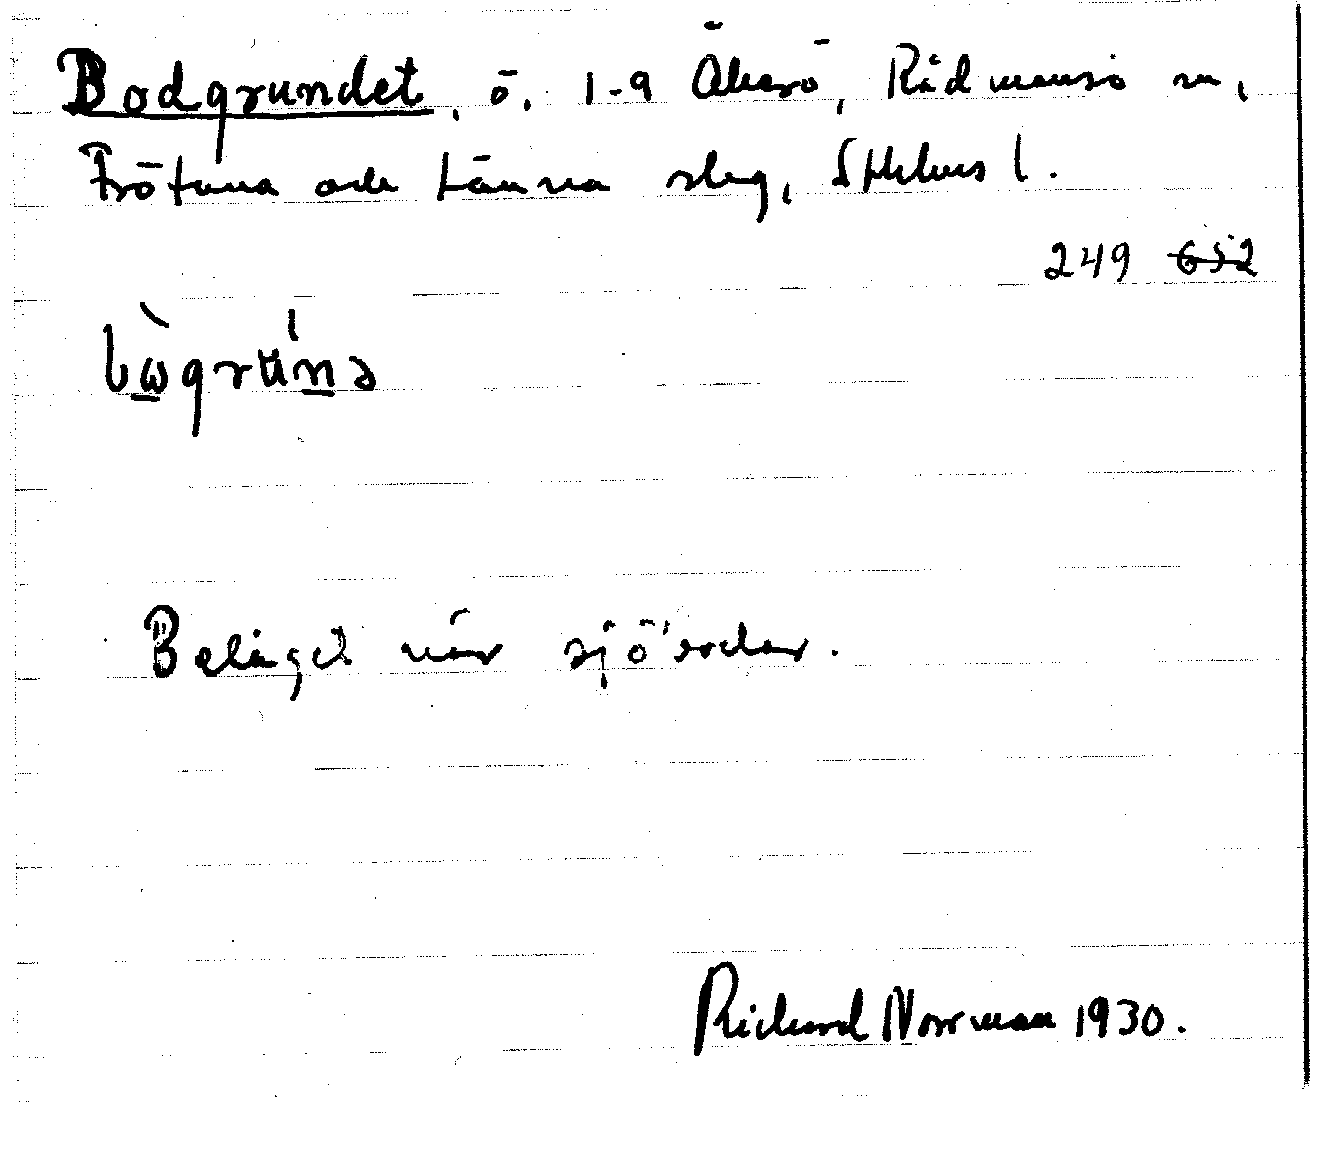 Bodgrundet, ö. 1-9 Åkerö, Rådmansö sn,
Frötuna och Länna slag, Sthlms l.
249 652
Beläget när sjöbodar.
Richard Norrman 1930.